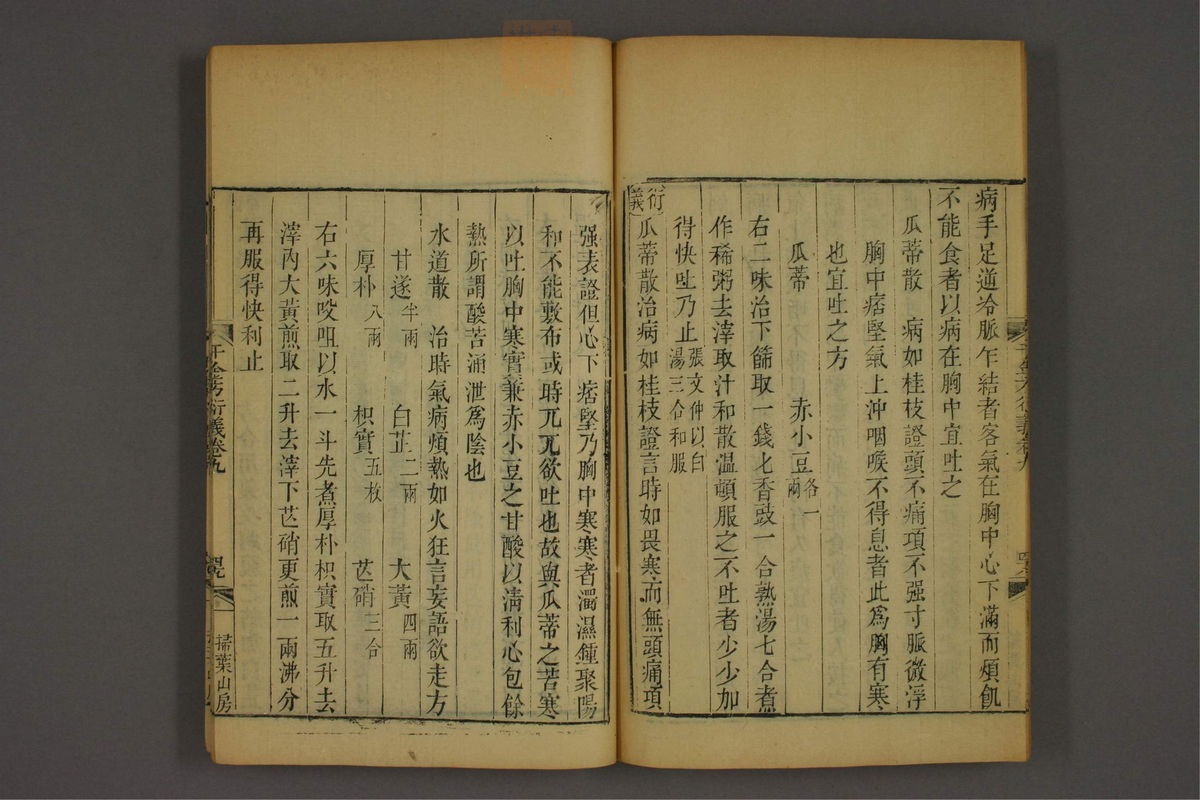 病手足逆冷脈乍結者客氣在胸中心下滿而煩飢
不能食者以病在胸中宜吐之
瓜蒂散 病如桂枝證頭不痛項不强寸脈微浮
胸中痞堅氣上沖咽喉不得息者此爲胸有寒
也宜吐之方
瓜蒂 赤小豆各一兩
右二味治下篩取一錢匕香豉一合熱湯七合煮
作稀粥去滓取汁和散溫頓服之不吐者少少加
得快吐乃止張文仲以白湯三合和服
衍義 瓜蒂散治病如桂枝證言時如畏寒而無頭痛項
强表證但心下痞堅乃胸中寒寒者濁濕鍾聚陽
和不能敷布或時兀兀欲吐也故與瓜蒂之苦寒
以吐胸中寒實兼赤小豆之甘酸以淸利心包餘
熱所謂酸苦涌泄爲陰也
水道散 治時氣病煩熱如火狂言妄語欲走方
甘遂半兩 白芷二兩 大黃四兩
厚朴八兩 枳實五枚 芒硝三合
右六味㕮咀以水一斗先煮厚朴枳實取五升去
滓內大黃煎取二升去滓下芒硝更煎一兩沸分
再服得快利止
千金方衍義卷九
掃葉山房